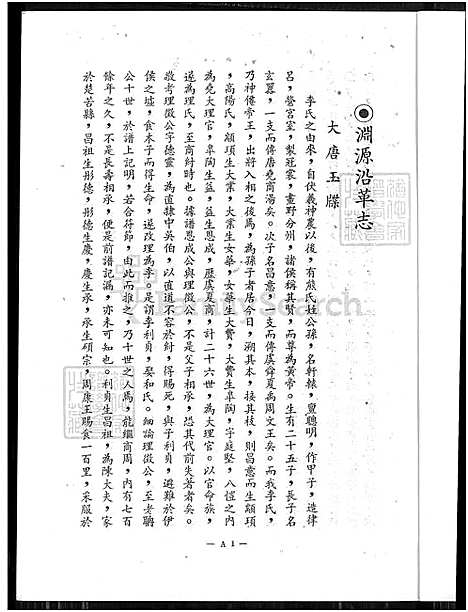 ◉淵源沿革志
大唐玉牒
李氏之由來，自伏羲神農以後，有熊氏姓公孫，名軒轅，實聰明，作甲子，造律
呂，營宮室，製冠裳，畫野分州，諸侯稱其賢，而尊為黃帝。生有二十五子，長子名
玄囂，一支而傳唐堯商湯矣。次子名昌意，一支而傳虞舜夏禹周文王矣。而我李氏，
乃神僊帝王，出將入相之後焉，為孫子者居今日，溯其本，接其枝，則昌意而生顓頊
，高陽氏，顓頊生大業，大業生女華，女華生大費，大費生皐陶，字庭堅，八愷之內
為堯大理官，皐陶生益，益生恩成，歷虞夏商，計二十六世，為大理官。以官命族，
遂為理氏，至商紂時也。據譜恩成公與理徵公，不是父子相承，恐其代前失著者矣。
敬考理徵公字德靈，為直隸中吳伯，以直道不容於紂，得賜死，與子利貞，避難於伊
侯之墟，食木子而得生命，遂改理為李。是謂李利貞，娶和氏。細論理徵公，至老聃
公十世，於譜上記明，若合符節，由此而推之，乃十世之人焉，能繼商周，內有七百
餘年之久，不是長壽相承，便是前譜記漏，亦未可知也。利貞生昌祖，為陳大夫，家
於楚苦縣，昌祖生彤德，彤德生慶，慶生承，承生碩宗，周康王賜食一百里，采服於
— A 1 —